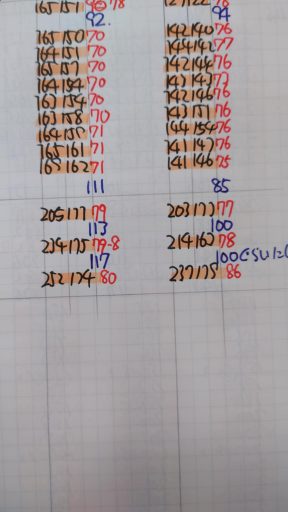 165 157 78
92.
165 150 70
164 151 70
165 157 70
164 154 70
163 154 70
163 158 70
164 155 71
165 161 71
165 162 71
111
205 177 79
113
234 175 79-8
117
252 174 80
127 122 76
94
142 140 76
144 141 77
142 144 76
143 143 73
142 146 76
143 151 76
144 154 76
141 147 76
141 146 75
85
203 173 77
100
214 162 78
100
237 175 86